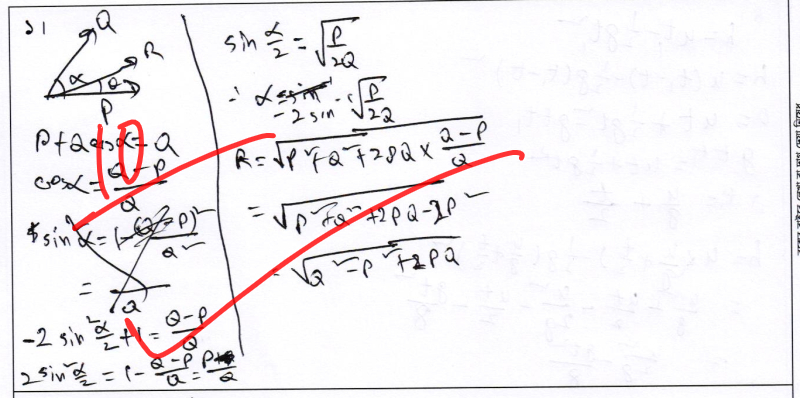 21
Q
R
α
θ
P
P + Q cos α = Q
cos α = (Q - P)/Q
sin²α = 1 - (Q - P)²/Q²
=
-2 sin² α/2 + 1 = (Q - P)/Q
2 sin² α/2 = 1 - (Q - P)/Q = P/Q
sin α/2 = √(P/2Q)
∴ α = 2 sin⁻¹ √(P/2Q)
R = √(P² + Q² + 2PQ × (Q - P)/Q)
= √(P² + Q² + 2PQ - 2P²)
= √(Q² - P² + 2PQ)